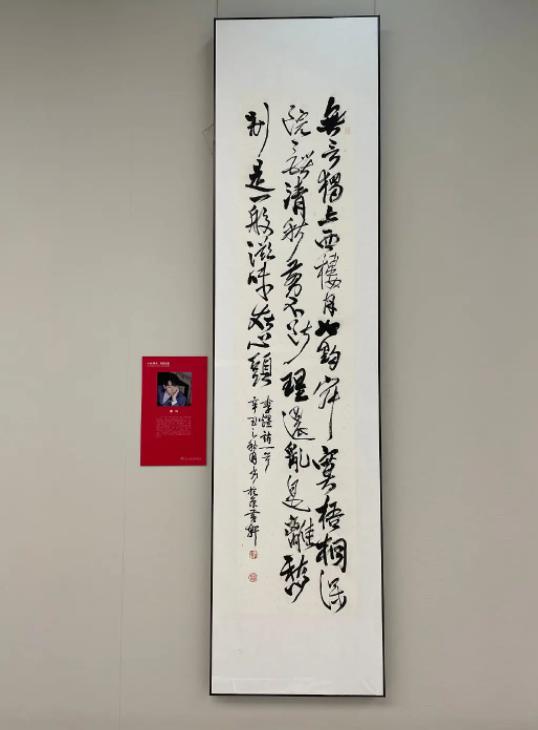 無言獨上西樓月如鈎寂寞梧桐深
院鎖清秋剪不斷理還亂是離愁
別是一般滋味在心頭
李煜詞一首
辛丑之秋